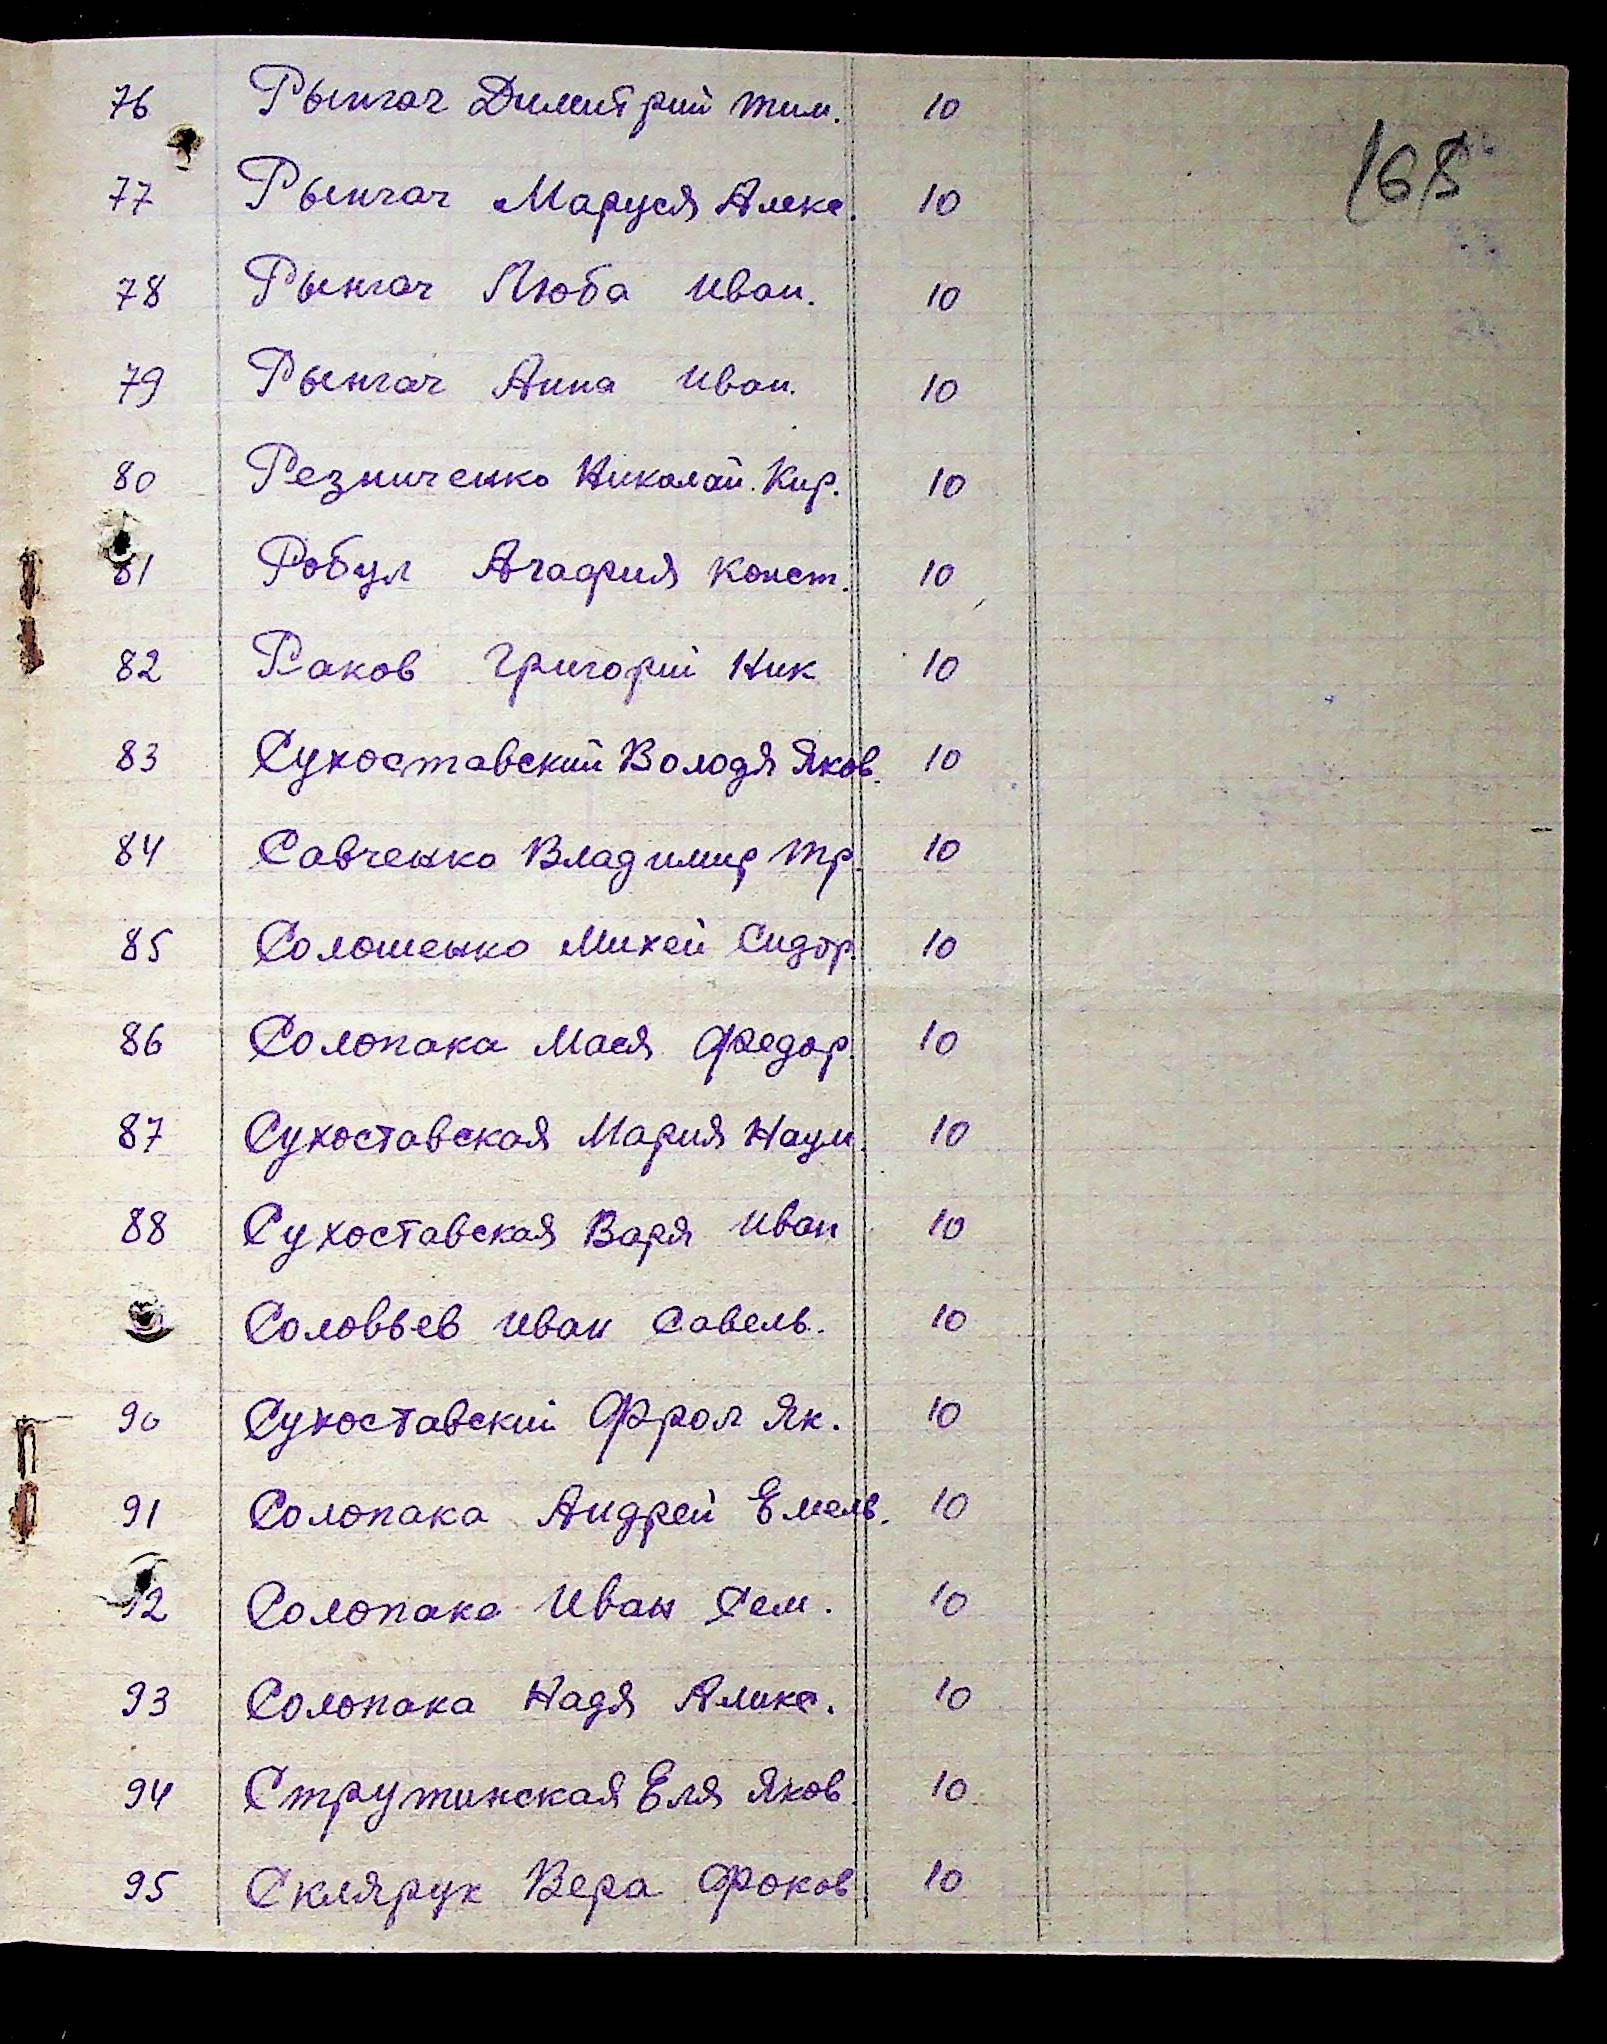 168
76 Рынгач Димитрий Тим. 10
77 Рынгач Маруся Алекс. 10
78 Рынгач Люба Иван. 10
79 Рынгач Анна Иван. 10
80 Резниченко Николай. Кир. 10
81 Робул Агафия Конст. 10
82 Раков Григорий Ник 10
83 Сухоставский Володя Яков. 10
84 Савченко Владимир Тр. 10
85 Солошенко Михей Сидор. 10
86 Солопака Мася Федор. 10
87 Сухоставская Мария Наум. 10
88 Сухоставская Варя Иван 10
Соловьев Иван Савель. 10
90 Сухоставский Фрол Як. 10
91 Солопака Андрей Емель. 10
92 Солопака Иван Сем. 10
93 Солопака Надя Алекс. 10
94 Струтинская Еля Яков. 10
95 Склярук Вера Фоков 10